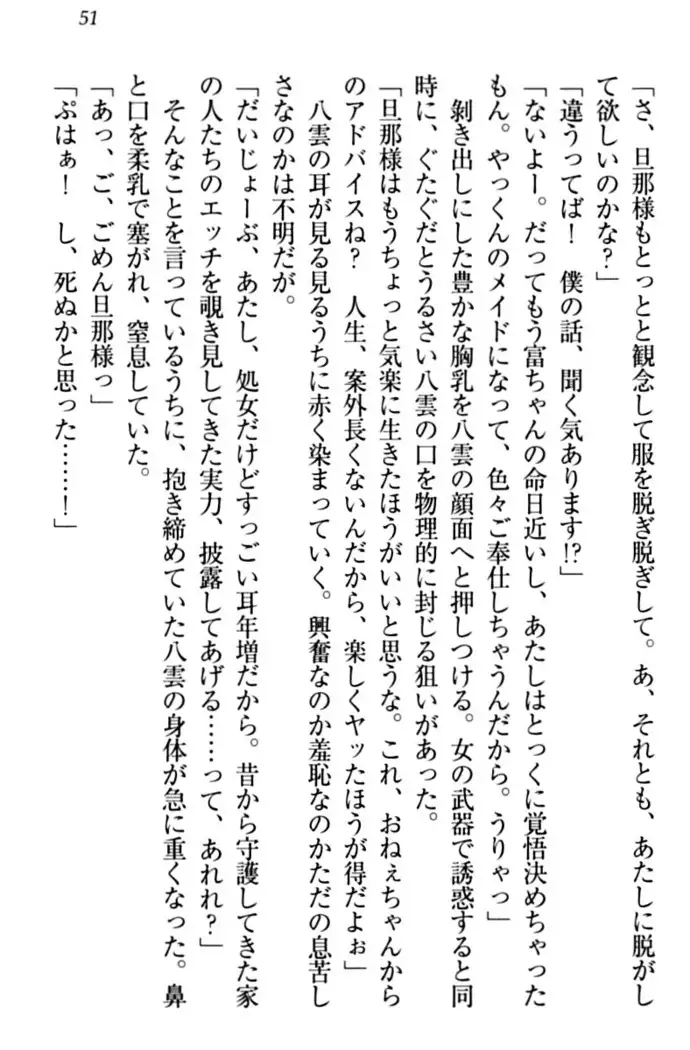 51
「さ、旦那様もとっとと観念して服を脱ぎ脱ぎして。あ、それとも、あたしに脱がし
て欲しいのかな?」
「違うってば! 僕の話、聞く気あります!?」
「ないよー。だってもう富ちゃんの命日近いし、あたしはとっくに覚悟決めちゃった
もん。やっくんのメイドになって、色々ご奉仕しちゃうんだから。うりゃっ」
剝き出しにした豊かな胸乳を八雲の顔面へと押しつける。女の武器で誘惑すると同
時に、ぐだぐだとうるさい八雲の口を物理的に封じる狙いがあった。
「旦那様はもうちょっと気楽に生きたほうがいいと思うな。これ、おねぇちゃんから
のアドバイスね? 人生、案外長くないんだから、楽しくヤッたほうが得だよぉ」
八雲の耳が見る見るうちに赤く染まっていく。興奮なのか羞恥なのかただの息苦し
さなのかは不明だが。
「だいじょーぶ、あたし、処女だけどすっごい耳年増だから。昔から守護してきた家
の人たちのエッチを覗き見してきた実力、披露してあげる……って、あれれ?」
そんなことを言っているうちに、抱き締めていた八雲の身体が急に重くなった。鼻
と口を柔乳で塞がれ、窒息していた。
「あっ、ご、ごめん旦那様っ」
「ぷはぁ! し、死ぬかと思った……!」